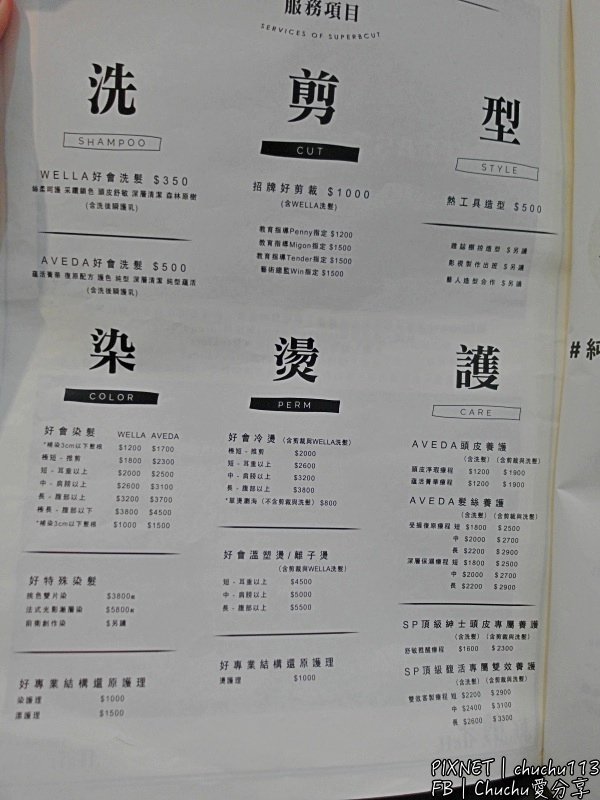 服務項目
SERVICES OF SUPERBCUT
洗
SHAMPOO
WELLA好會洗髮 $350
絲柔呵護 采纖鎖色 頭皮舒敏 深層清潔 森林原樹
(含洗後瞬護乳)
AVEDA好會洗髮 $500
蘊活菁華 復原配方 護色 純型 深層清潔 純型蘊活
(含洗後瞬護乳)
剪
CUT
招牌好剪裁 $1000
(含WELLA洗髮)
教育指導Penny指定 $1200
教育指導Migon指定 $1500
教育指導Tender指定 $1500
藝術總監Win指定 $1500
型
STYLE
熱工具造型 $500
雜誌棚拍造型 $另議
影視製作出班 $另議
藝人造型合作 $另議
染
COLOR
好會染髮 WELLA AVEDA
*補染3cm以下髮根 $1200 $1700
極短 - 推剪 $1800 $2300
短 - 耳重以上 $2000 $2500
中 - 肩膀以上 $2600 $3100
長 - 腹部以上 $3200 $3700
極長 - 腹部以下 $3800 $4500
*補染3cm以下髮根 $1000 $1500
好特殊染髮
挑色雙片染 $3800起
法式光影漸層染 $5800起
前衛創作染 $另議
好專業結構還原護理
染護理 $1000
漂護理 $1500
燙
PERM
好會冷燙 (含剪裁與WELLA洗髮)
極短 - 推剪 $2000
短 - 耳重以上 $2600
中 - 肩膀以上 $3200
長 - 腹部以上 $3800
*單燙瀏海 (不含剪裁與洗髮) $800
好會溫塑燙/離子燙
(含剪裁與WELLA洗髮)
短 - 耳重以上 $4500
中 - 肩膀以上 $5000
長 - 腹部以上 $5500
好專業結構還原護理
燙護理 $1000
護
CARE
AVEDA頭皮養護
(含洗髮) (含剪裁與洗髮)
頭皮淨取療程 $1200 $1900
蘊活菁華療程 $1200 $1900
AVEDA髮絲養護
(含洗髮) (含剪裁與洗髮)
受損復原療程 短 $1800 $2500
中 $2000 $2700
長 $2200 $2900
深層保濕療程 短 $1800 $2500
中 $2000 $2700
長 $2200 $2900
SP頂級紳士頭皮專屬養護
(含洗髮) (含剪裁與洗髮)
舒敏甦醒療程 $1600 $2300
SP頂級馥活專屬雙效養護
(含洗髮) (含剪裁與洗髮)
雙效客製療程 短 $2200 $2900
中 $2400 $3100
長 $2600 $3300
#純
PIXNET | chuchu113
FB | Chuchu愛分享